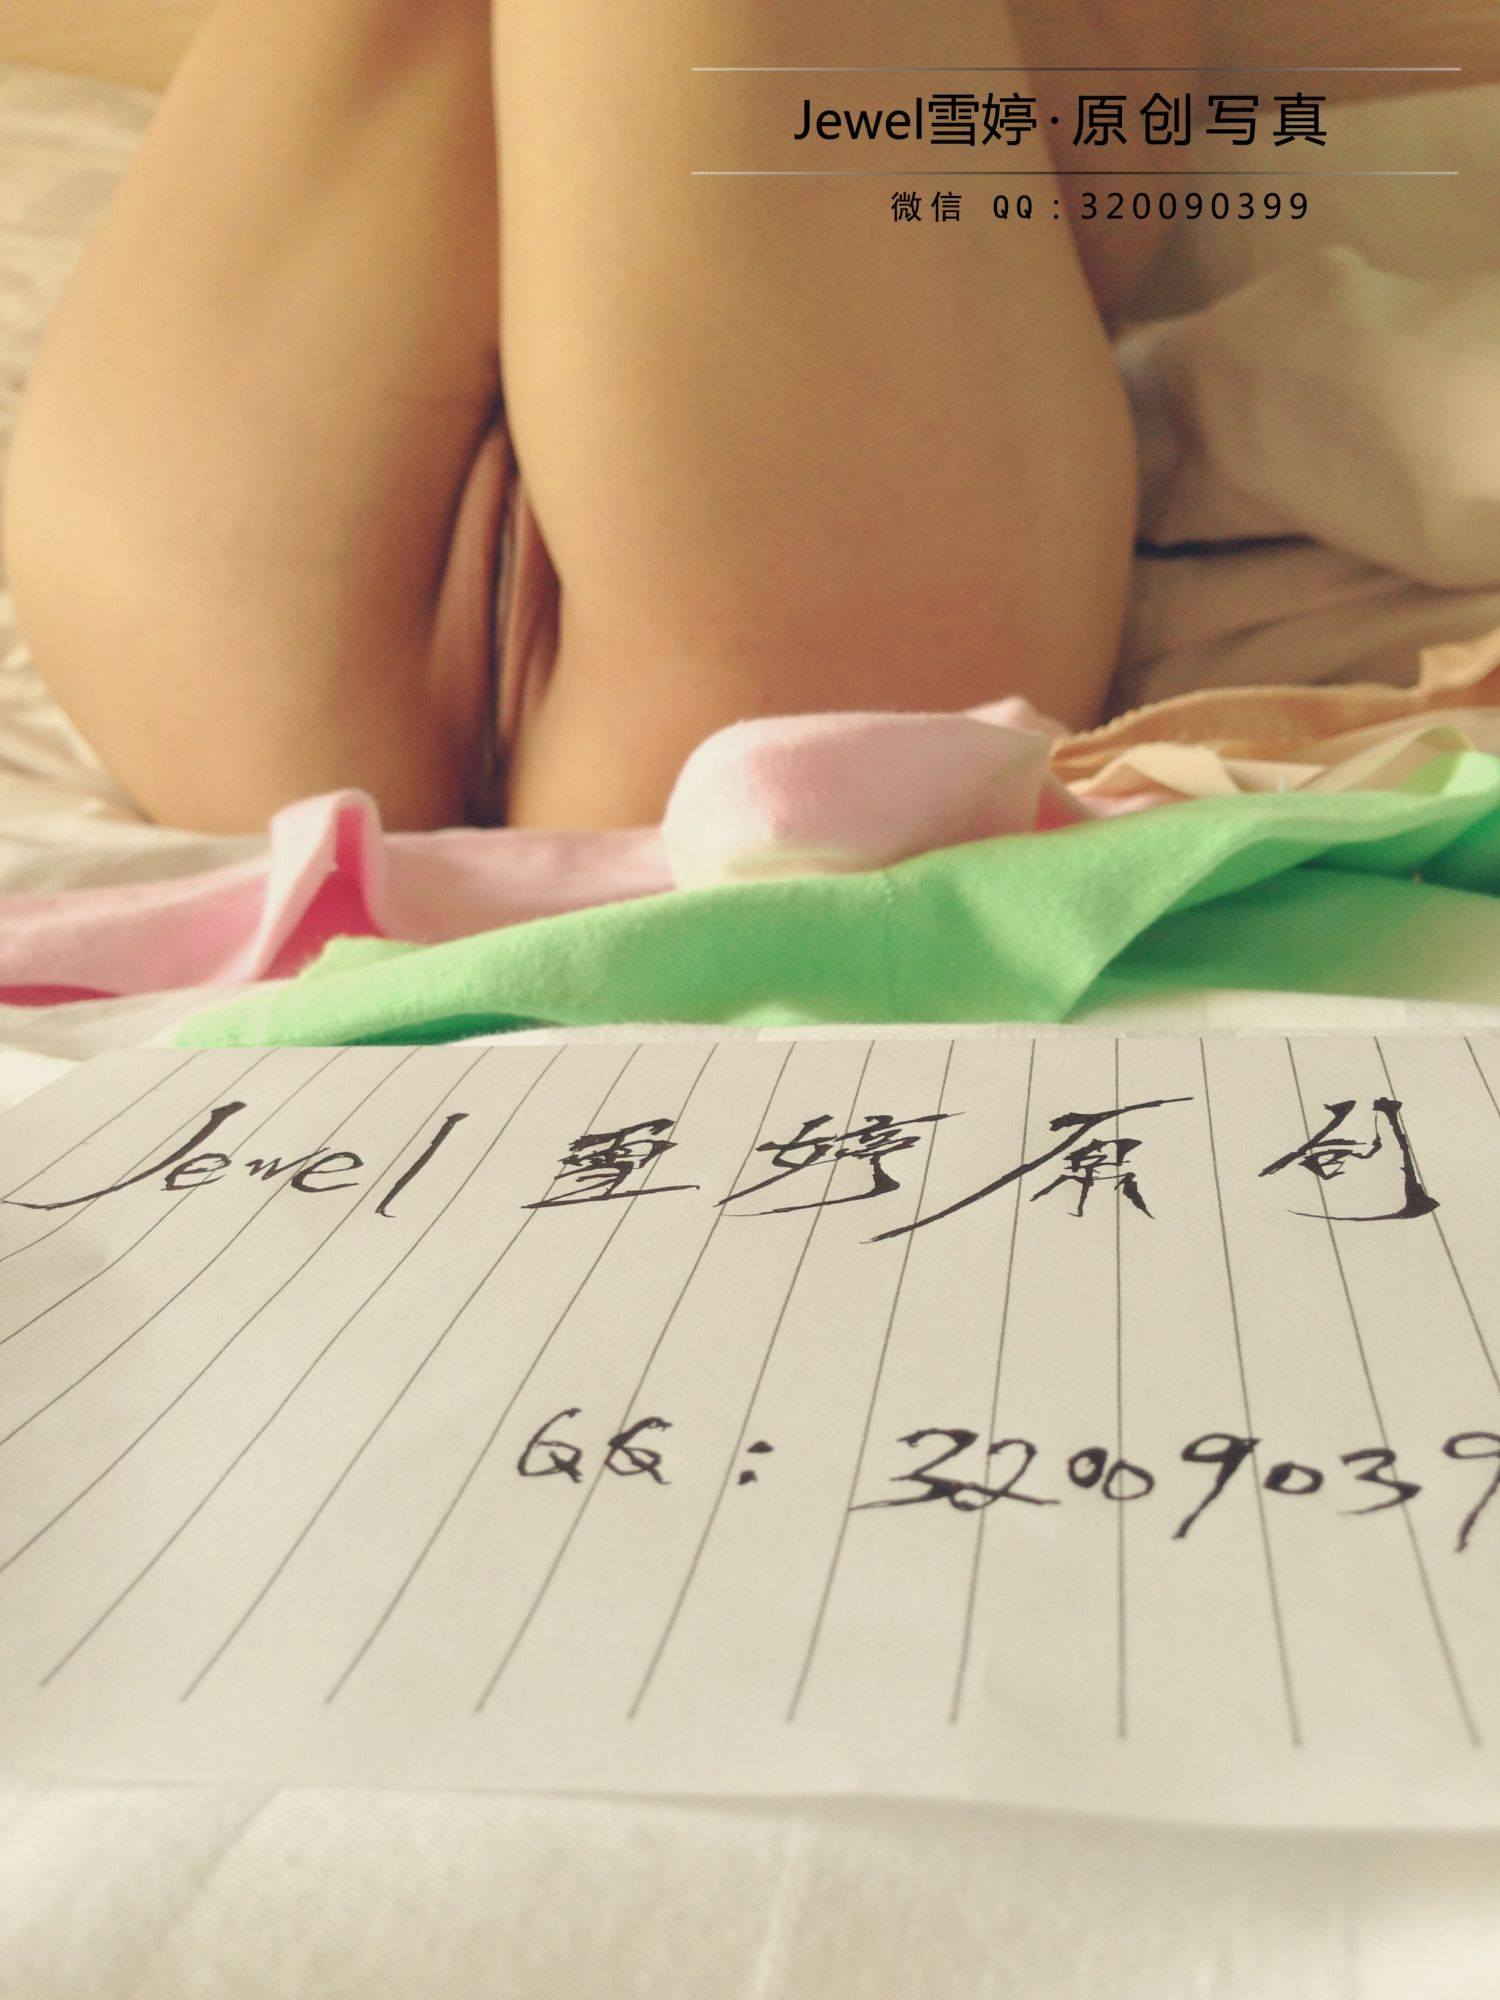 Jewel雪婷·原创写真
微信 QQ:320090399
Jewel 雪婷原创
QQ: 32009039